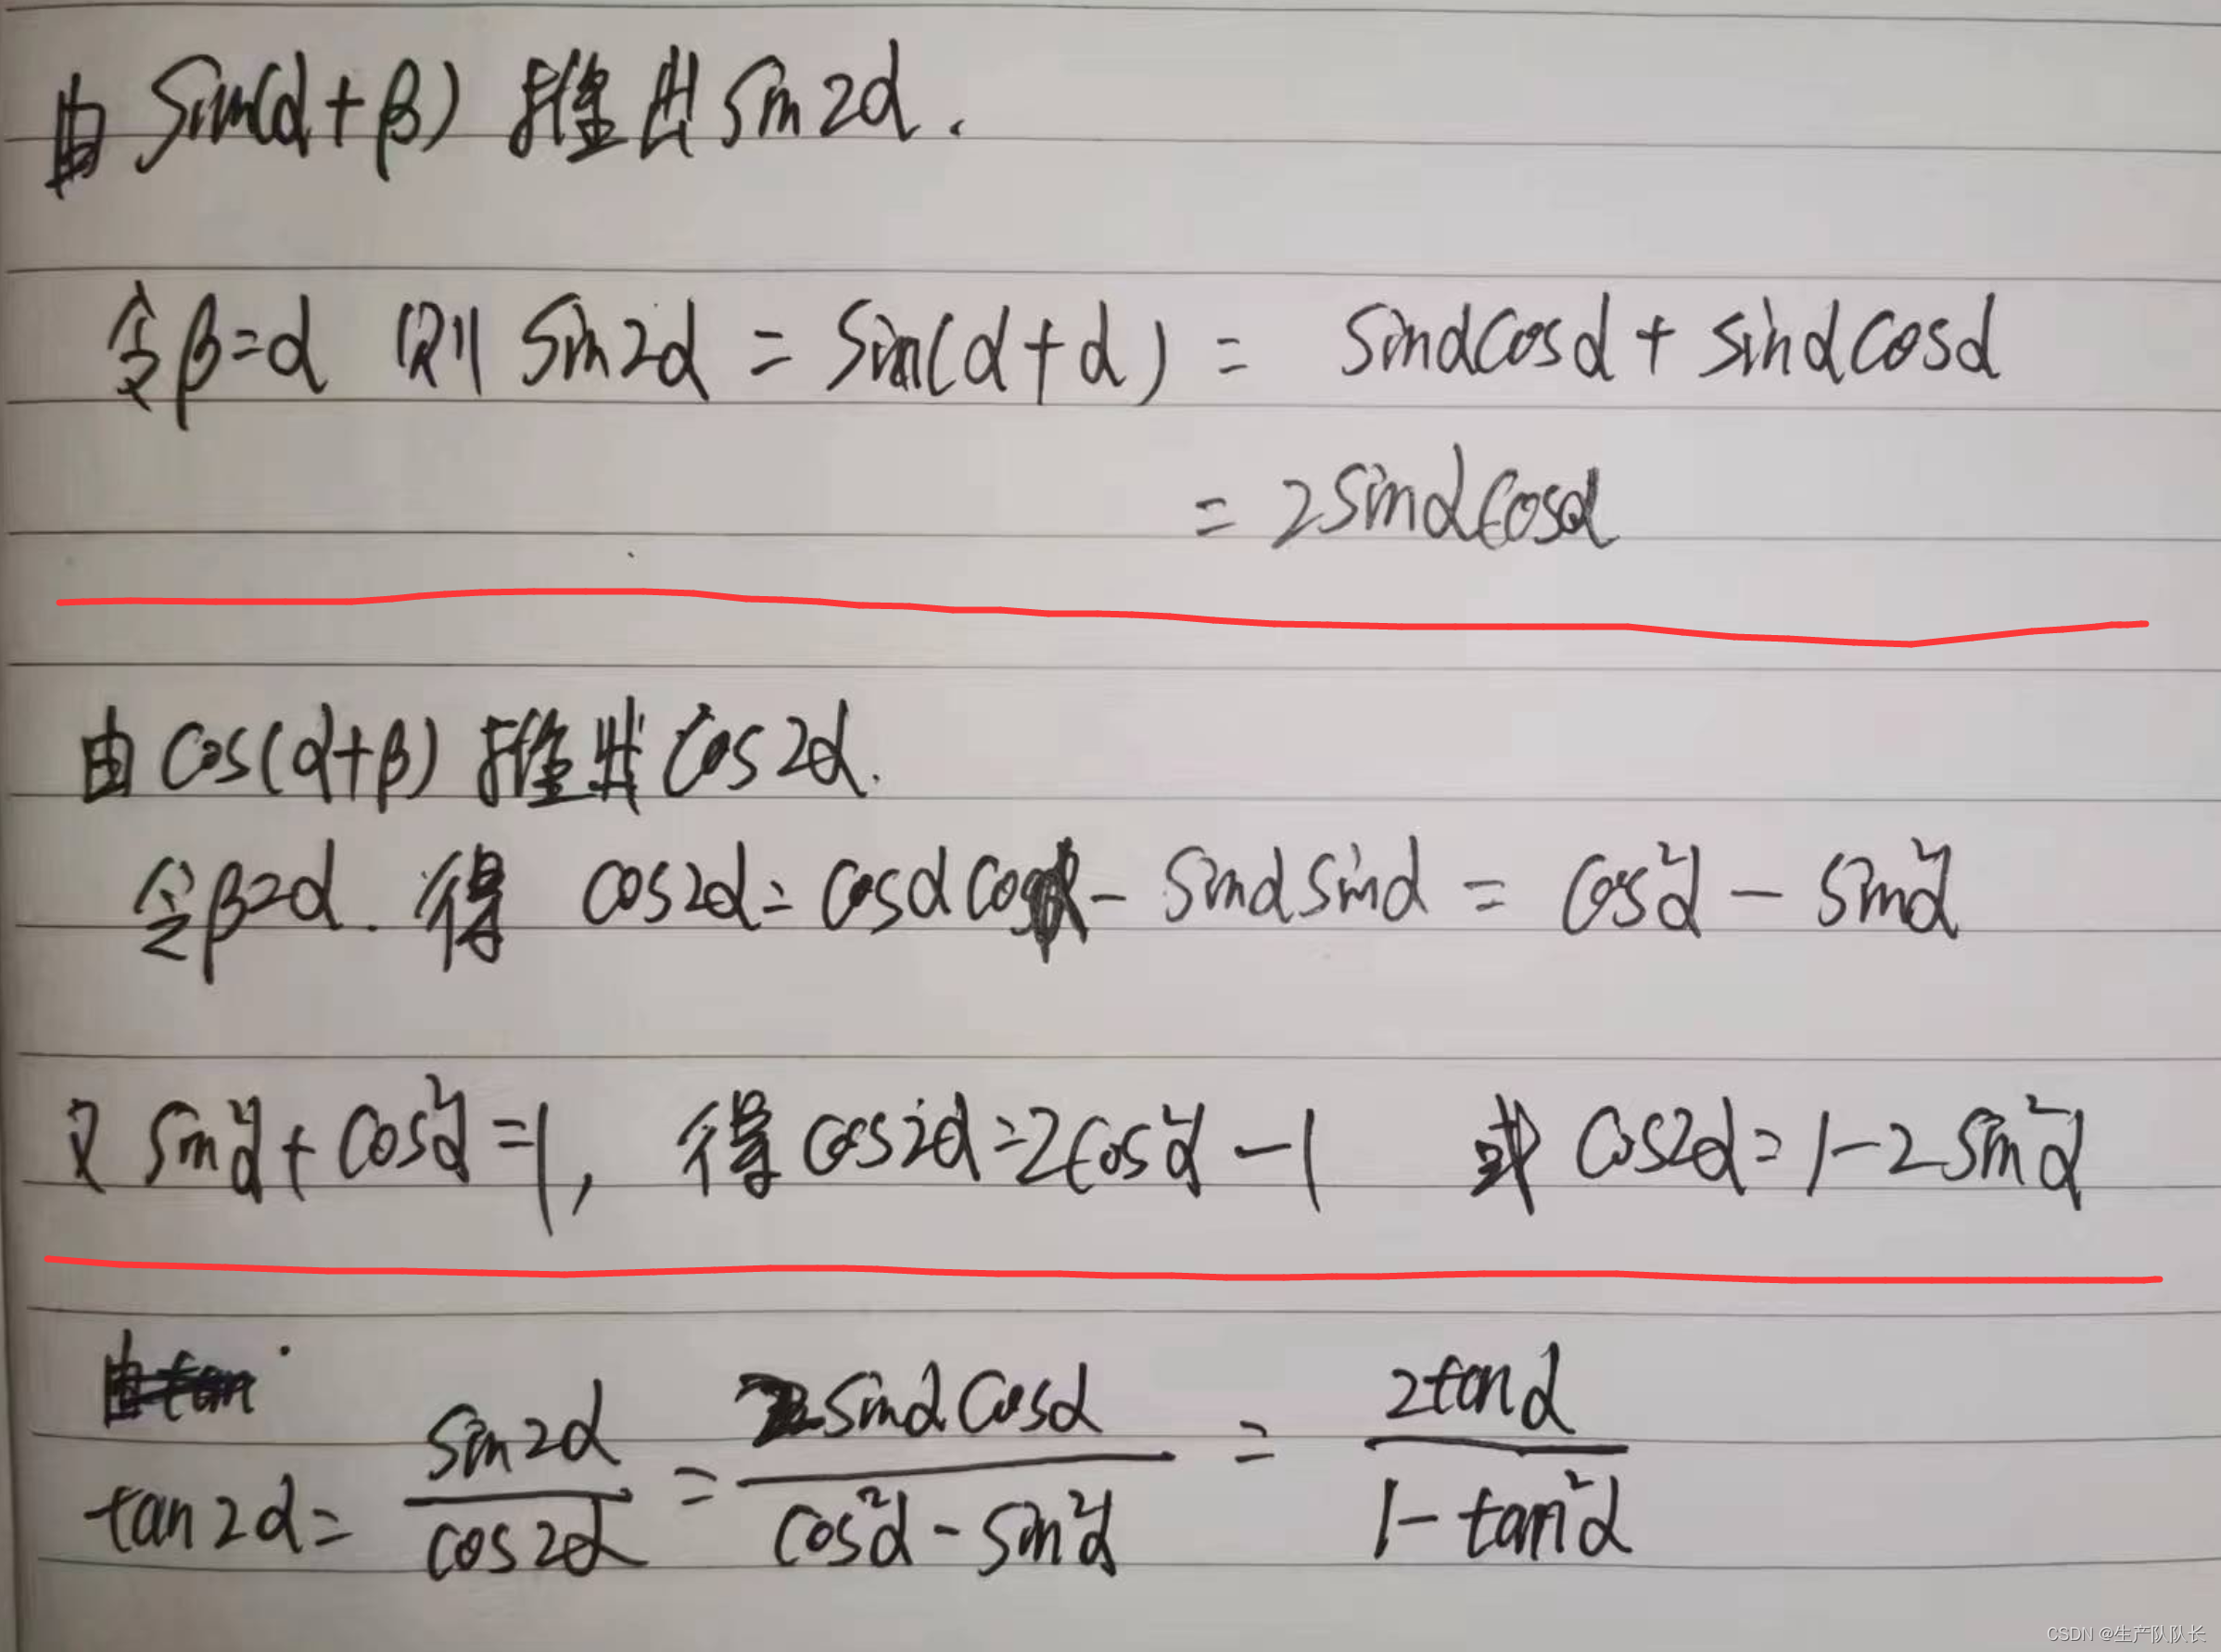 由 sin(α+β) 推出 sin2α.
令β=α 则 sin2α = sin(α+α) = sinαcosα + sinαcosα
= 2sinαcosα
由 cos(α+β) 推出 cos2α.
令β=α. 得 cos2α = cosαcosα - sinαsinα = cos²α - sin²α
又 sin²α + cos²α = 1, 得 cos2α = 2cos²α - 1 或 cos2α = 1 - 2sin²α
由tan
tan2α = sin2α/cos2α = 2sinαcosα/(cos²α - sin²α) = 2tanα/(1 - tan²α)
CSDN @生产队队长